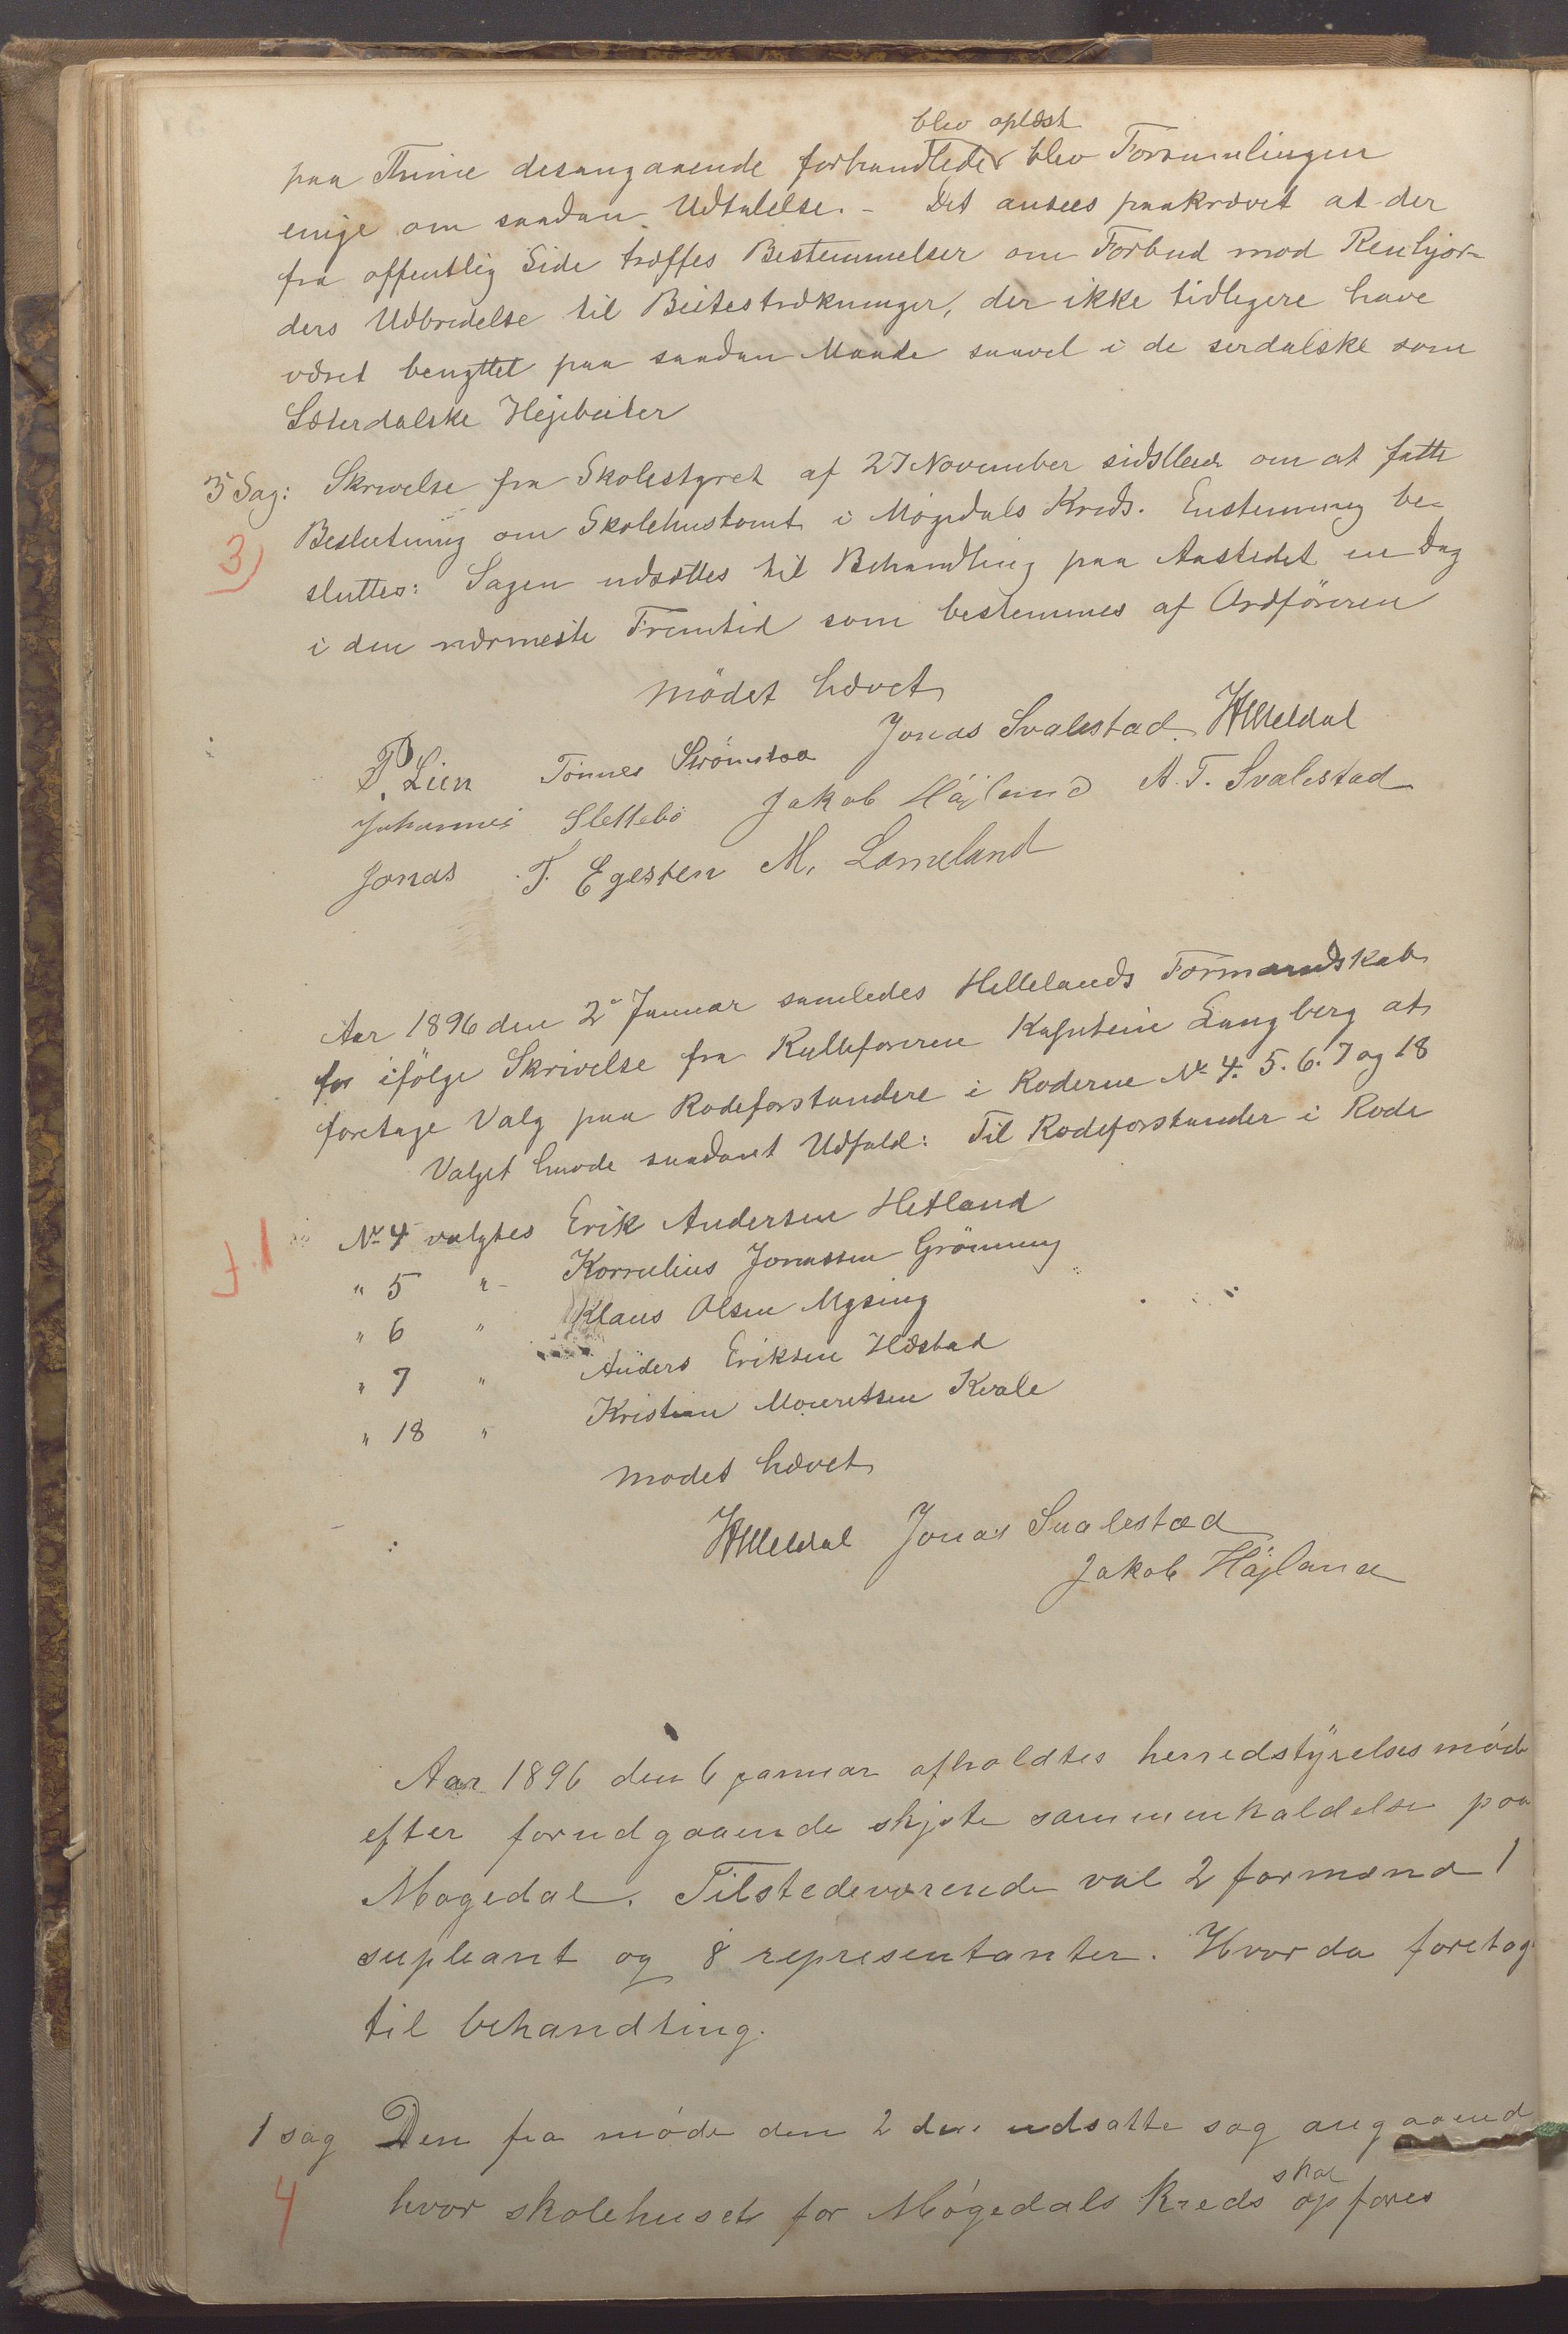 blev oplæst
paa Thime desangaaende forhandledes blev Forsamlingen
enige om saadan Udtalelse. - Det ansees paakrævet at der
fra offentlig Side træffes Bestemmelser om Forbud mod Renhjor-
ders Udbredelse til Beitestrækninger, der ikke tidligere have
været benyttet paa saadan Maade saavel i de serdalske som
Sæterdalske Hejebeiter
3 Sag: Skrivelse fra Skolestyret af 27 November sidstleden om at fatte
Beslutning om Skolehustomt i Møgedals Kreds. Enstemmig be-
3)
sluttes: Sagen udsættes til Behandling paa Aastedet en Dag
i den nærmeste Fremtid som bestemmes af Ordføreren
Mödet hævet
P. Lien Tönnes Strömstad Jonas Svalestad. Meldal
Johannes Slettebö Jakob Håjland A. T. Svalestad
Jonas T. Egesten M. Lomeland
Aar 1896 den 2den Januar samledes Hellelands Formandskab
for ifölge Skrivelse fra Rulleføreren Kaptein Langberg at
foretage Valg paa Rodeforstandere i Roderne No 4. 5. 6. 7 og 18
Valget havde saadant Udfald: Til Rodeforstander i Rode
No 4 valgtes Erik Andersen Hetland
J.1
" 5 " Kornelius Jonassen Grönning
" 6 " Klaus Olsen Mysing
" 7 " Anders Eriksen Hæstad
" 18 " Kristian Mouritsen Kvale
Mødet hævet
Meldal Jonas Svalestad
Jakob Håjland
Aar 1896 den 6 januar afholdtes herredstyrelsesmøde
efter forudgaaende skjete sammenkaldelse paa
Møgedal. Tilstedeværende val 2 formænd 1
supleant og 8 representanter. Hvorda foretog
til behandling.
1 sag Den fra møde den 2 dns udsatte sag angaaend
skal
4 hvor skolehuset for Møgedals Kreds opføres